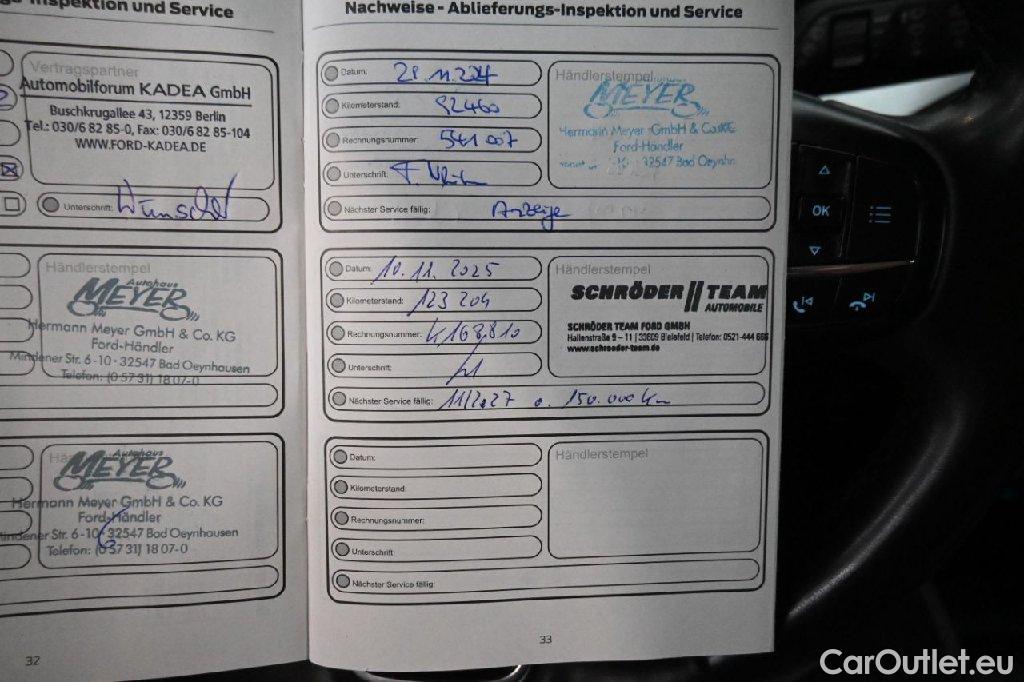 Inspektion und Service
Vertragspartner
Automobilforum KADEA GmbH
Buschkrugallee 43, 12359 Berlin
Tel.: 030/6 82 85-0, Fax: 030/6 82 85-104
WWW.FORD-KADEA.DE
Unterschrift:
Händlerstempel
Autohaus
MEYER
Hermann Meyer GmbH & Co. KG
Ford-Händler
Mindener Str. 6-10 · 32547 Bad Oeynhausen
Telefon: (0 57 31) 18 07-0
Autohaus
MEYER
Hermann Meyer GmbH & Co. KG
Ford-Händler
Mindener Str. 6-10 · 32547 Bad Oeynhausen
Telefon: (0 57 31) 18 07-0
32
Nachweise - Ablieferungs-Inspektion und Service
Datum:
Kilometerstand: 92460
Rechnungsnummer: 541 007
Unterschrift:
Nächster Service fällig: Anzeige
Händlerstempel
MEYER
Hermann Meyer GmbH & Co. KG
Ford-Händler
32547 Bad Oeynh
Datum: 10.11.2025
Kilometerstand: 123 204
Rechnungsnummer:
Unterschrift:
Nächster Service fällig: 11/2027 o. 150.000 km
Händlerstempel
SCHRÖDER TEAM
AUTOMOBILE
SCHRÖDER TEAM FORD GMBH
Hallenstraße 9 – 11 | 33609 Bielefeld | Telefon: 0521-444 666
www.schroeder-team.de
Datum:
Kilometerstand:
Rechnungsnummer:
Unterschrift
Nächster Service fällig:
Händlerstempel
33
OK
CarOutlet.eu